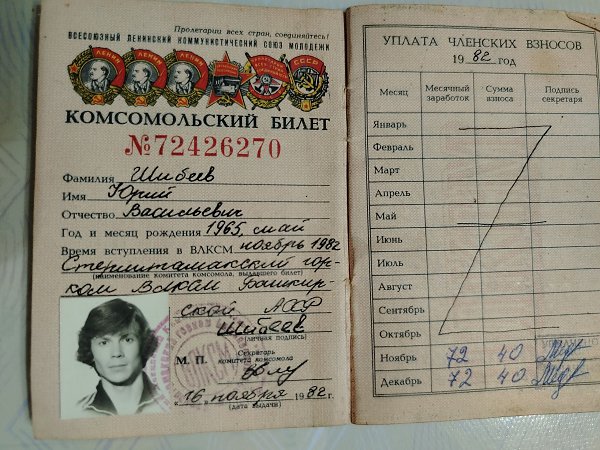 Пролетарии всех стран, соединяйтесь!
ВСЕСОЮЗНЫЙ ЛЕНИНСКИЙ КОММУНИСТИЧЕСКИЙ СОЮЗ МОЛОДЕЖИ
ЛЕНИН ЛЕНИН ЛЕНИН СССР
КОМСОМОЛЬСКИЙ БИЛЕТ
№72426270
Фамилия Шибеев
Имя Юрий
Отчество Васильевич
Год и месяц рождения 1965, май
Время вступления в ВЛКСМ ноябрь 1982
Стерлитамакский гор-
(наименование комитета комсомола, выдавшего билет)
ком ВЛКСМ Башкир-
ской АССР
Шибеев
(личная подпись)
М. П. Секретарь
комитета комсомола
"16" ноября 1982 г.
(дата выдачи)
УПЛАТА ЧЛЕНСКИХ ВЗНОСОВ
1982 год
Месяц Месячный заработок Сумма взноса Подпись секретаря
Январь
Февраль
Март
Апрель
Май
Июнь
Июль
Август
Сентябрь
Октябрь
Ноябрь 72 40
Декабрь 72 40